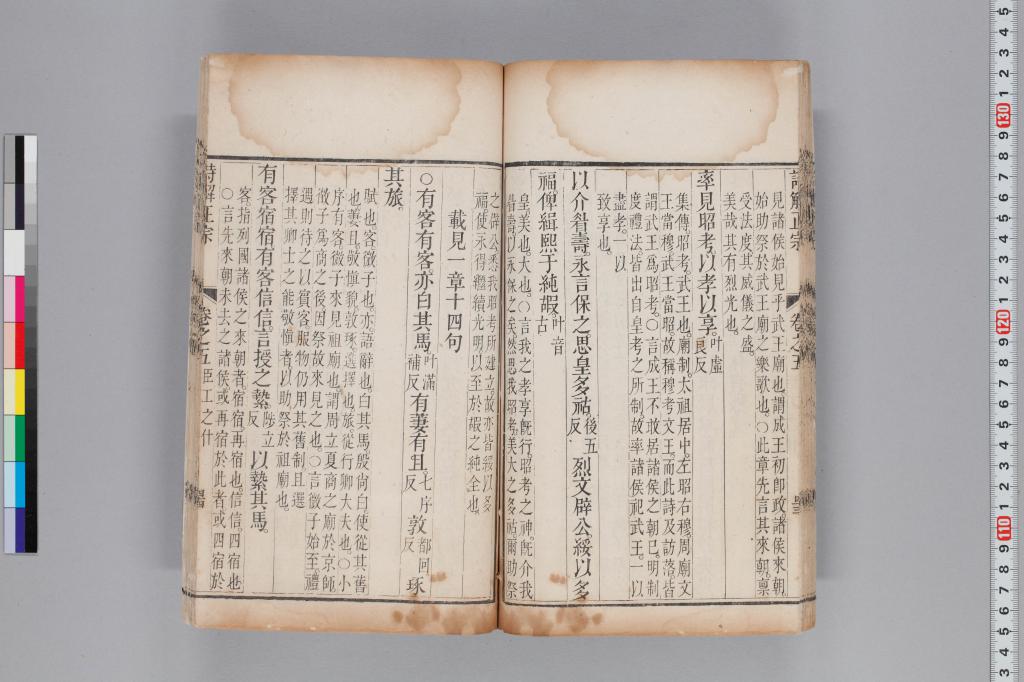 詩解正宗 卷之五
見諸侯始見乎武王廟也謂成王初卽政諸侯來朝
始助祭於武王廟之樂歌也○此章先言其來朝禀
受法度其威儀之盛
美哉其有烈光也
率見昭考以孝以享叶虛良反
集傳昭考武王也廟制太祖居中左昭右穆周廟文
王當穆武王當昭故稱穆考文王而此詩及訪落皆
謂武王爲昭考○言成王不敢居諸侯之朝已明制
度禮法皆出自皇考之所制故率諸侯祀武王一以
盡孝一以
致享也
以介眉壽永言保之思皇多祜後五反烈文辟公綏以多
福俾緝熙于純嘏叶音古
皇美也大也○言我之孝享旣行昭考之神旣介我
眉壽以永保之矣然思我昭考美大之多祜爾助祭
之辟公悉我昭考所建立故亦皆綏以多
福使永得繼續光明以至於嘏之純全也
載見一章十四句
○有客有客亦白其馬叶滿補反有萋有且七序反敦都回反琢
其旅
賦也客微子也亦語辭也白其馬殷尙白使從其舊
也萋且敬愼貌敦琢選擇也旅從行卿大夫也○小
序有客微子來見祖廟也謂周立夏商之廟於京師
微子爲商之後因祭故來見之也○言微子始至禮
遇則待之以賓客服物仍用其舊制且選
擇其卿士之能敬愼者以助祭於祖廟也
有客宿宿有客信信言授之縶陟立反以縶其馬
客指列國諸侯之來朝者宿宿再宿也信信四宿也
○言先來朝未去之諸侯或再宿於此者或四宿於
詩解正宗 卷之五 臣工之什